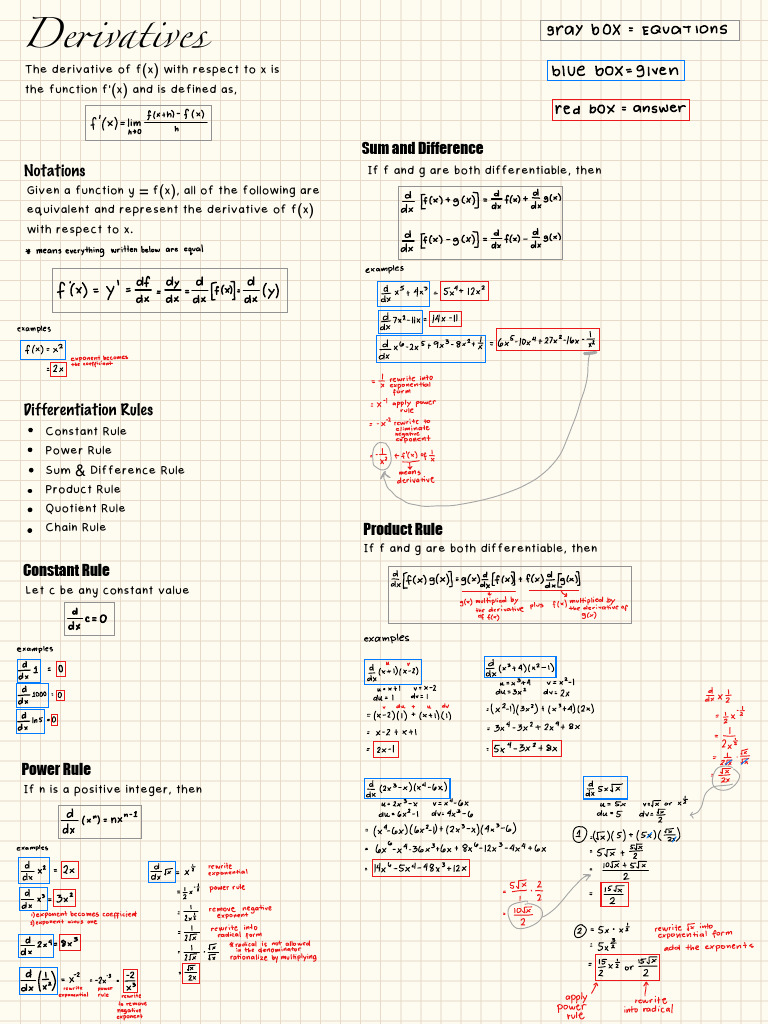 Derivatives
The derivative of f(x) with respect to x is
the function f'(x) and is defined as,
f'(x) = lim h→0 f(x+h) - f(x) / h
Notations
Given a function y = f(x), all of the following are
equivalent and represent the derivative of f(x)
with respect to x.
* means everything written below are equal
f'(x) = y' = df/dx = dy/dx = d/dx [f(x)] = d/dx (y)
examples
f(x) = x²
= 2x
exponent becomes
the coefficient
Differentiation Rules
• Constant Rule
• Power Rule
• Sum & Difference Rule
• Product Rule
• Quotient Rule
• Chain Rule
Constant Rule
Let c be any constant value
d/dx c = 0
examples
d/dx 1 = 0
d/dx 1000 = 0
d/dx ln5 = 0
Power Rule
If n is a positive integer, then
d/dx (xⁿ) = nxⁿ⁻¹
examples
d/dx x² = 2x
d/dx x³ = 3x²
1) exponent becomes coefficient
2) exponent minus one
d/dx 2x⁴ = 8x³
d/dx (1/x²) = x⁻² = -2x⁻³ = -2/x³
rewrite
exponential
power
rule
rewrite
to remove
negative
exponent
d/dx √x = x^½
rewrite
exponential
= ½ x^-½
power rule
= 1/2x^½
remove negative
exponent
= 1/2√x
rewrite into
radical form
= 1/2√x · √x/√x
* radical is not allowed
in the denominator
rationalize by multiplying
= √x/2x
gray box = EQUATIONS
blue box = given
red box = answer
Sum and Difference
If f and g are both differentiable, then
d/dx [f(x) + g(x)] = d/dx f(x) + d/dx g(x)
d/dx [f(x) - g(x)] = d/dx f(x) - d/dx g(x)
examples
d/dx x⁵ + 4x³ = 5x⁴ + 12x²
d/dx 7x² - 11x = 14x - 11
d/dx x⁶ - 2x⁵ + 9x³ - 8x² + 1/x = 6x⁵ - 10x⁴ + 27x² - 16x - 1/x²
= 1/x rewrite into
exponential
form
= x⁻¹ apply power
rule
= -x⁻² rewrite to
eliminate
negative
exponent
= -1/x² ← f'(x) of 1/x
means
derivative
Product Rule
If f and g are both differentiable, then
d/dx [f(x) g(x)] = g(x) d/dx [f(x)] + f(x) d/dx [g(x)]
g(x) multiplied by
the derivative
of f(x)
plus
f(x) multiplied by
the derivative of
g(x)
examples
u v
d/dx (x+1)(x-2)
u = x+1 v = x-2
du = 1 dv = 1
v du u dv
= (x-2)(1) + (x+1)(1)
= x-2 + x+1
= 2x-1
d/dx (x³+4)(x²-1)
u = x³+4 v = x²-1
du = 3x² dv = 2x
= (x²-1)(3x²) + (x³+4)(2x)
= 3x⁴ - 3x² + 2x⁴ + 8x
= 5x⁴ - 3x² + 8x
d/dx x ½
= ½ x^-½
= 1/2x^½
= 1/2√x · √x/√x
= √x/2x
d/dx (2x³-x)(x⁴-6x)
u = 2x³-x v = x⁴-6x
du = 6x²-1 dv = 4x³-6
= (x⁴-6x)(6x²-1) + (2x³-x)(4x³-6)
= 6x⁶ - x⁴ - 36x³ + 6x + 8x⁶ - 12x³ - 4x⁴ + 6x
= 14x⁶ - 5x⁴ - 48x³ + 12x
d/dx 5x√x
u = 5x v = √x or x^½
du = 5 dv = √x/2x
① = (√x)(5) + (5x)(√x/2x)
= 5√x + 5√x/2
= 10√x + 5√x / 2
= 15√x/2
= 5√x/1 · 2/2
= 10√x/2
② = 5x · x^½
rewrite √x into
exponential form
= 5x^3/2
add the exponents
= 15/2 x^½ or 15√x/2
apply
power
rule
rewrite
into radical